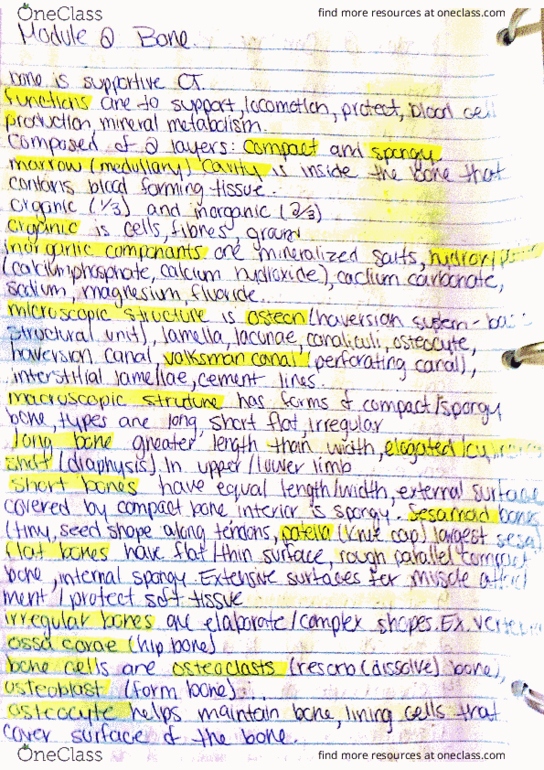 OneClass
find more resources at oneclass.com
Module 2 Bone
bone is supportive CT.
functions are to support, locomotion, protect, blood cell
production, mineral metabolism.
Composed of 2 layers: compact and spongy
marrow (medullary) cavity is inside the bone that
contains blood forming tissue.
organic (1/3) and inorganic (2/3)
organic is cells, fibres, ground
inorganic components are mineralized salts,
(calcium phosphate, calcium hydroxide), calcium carbonate,
sodium, magnesium, fluoride.
microscopic structure is osteon (haversion system -
structural unit), lamella, lacunae, canaliculi, osteocyte,
haversion canal, volksman canal (perforating canal),
interstitial lamellae, cement lines.
macroscopic struture has forms of compact/spongy
bone, types are long, short flat, irregular
long bone greater length than width, elogated/
shaft (diaphysis). In upper/lower limb
short bones have equal length/width, external surface
covered by compact bone interior is spongy. Sesamoid bones
(tiny, seed shape along tendons, patella (knee cap) largest
flat bones have flat/thin surface, rough parallel compact
bone, internal spongy. Extensive surfaces for muscle attach
ment/protect soft tissue
irregular bones are elaborate/complex shapes. Ex.
ossa coxae (hip bone)
bone cells are osteoclasts (resorb (dissolve) bone),
osteoblast (form bone).
osteocyte helps maintain bone, lining cells that
cover surface of the bone.
OneClass
find more resources at oneclass.com